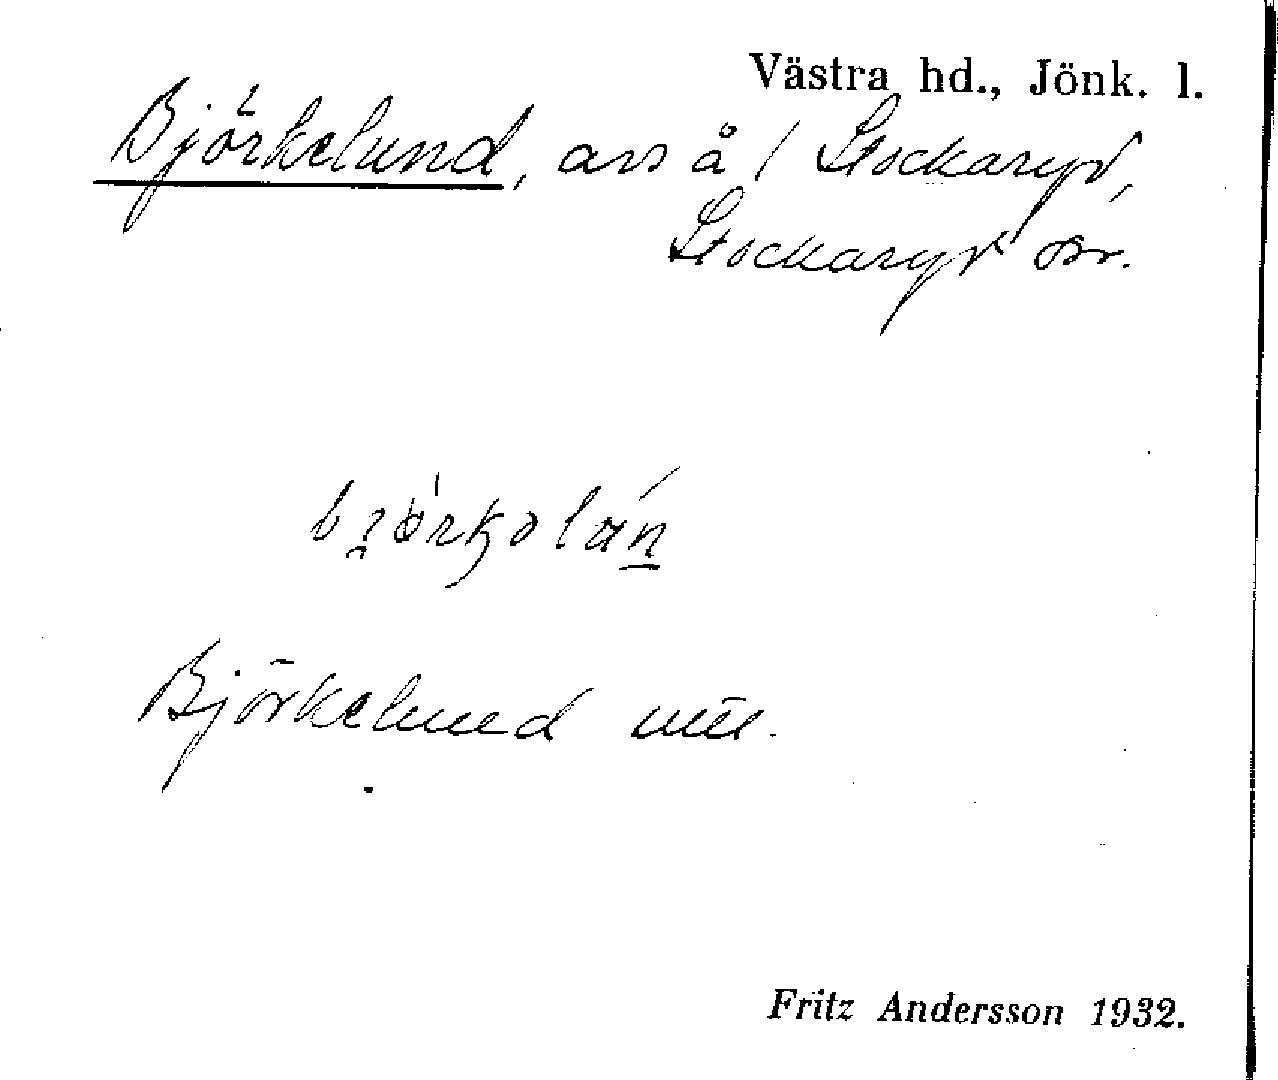 Västra hd., Jönk. l.
Björkelund, avs å 1 Stockaryd,
Stockaryd sn.
Björkelund
Fritz Andersson 1932.